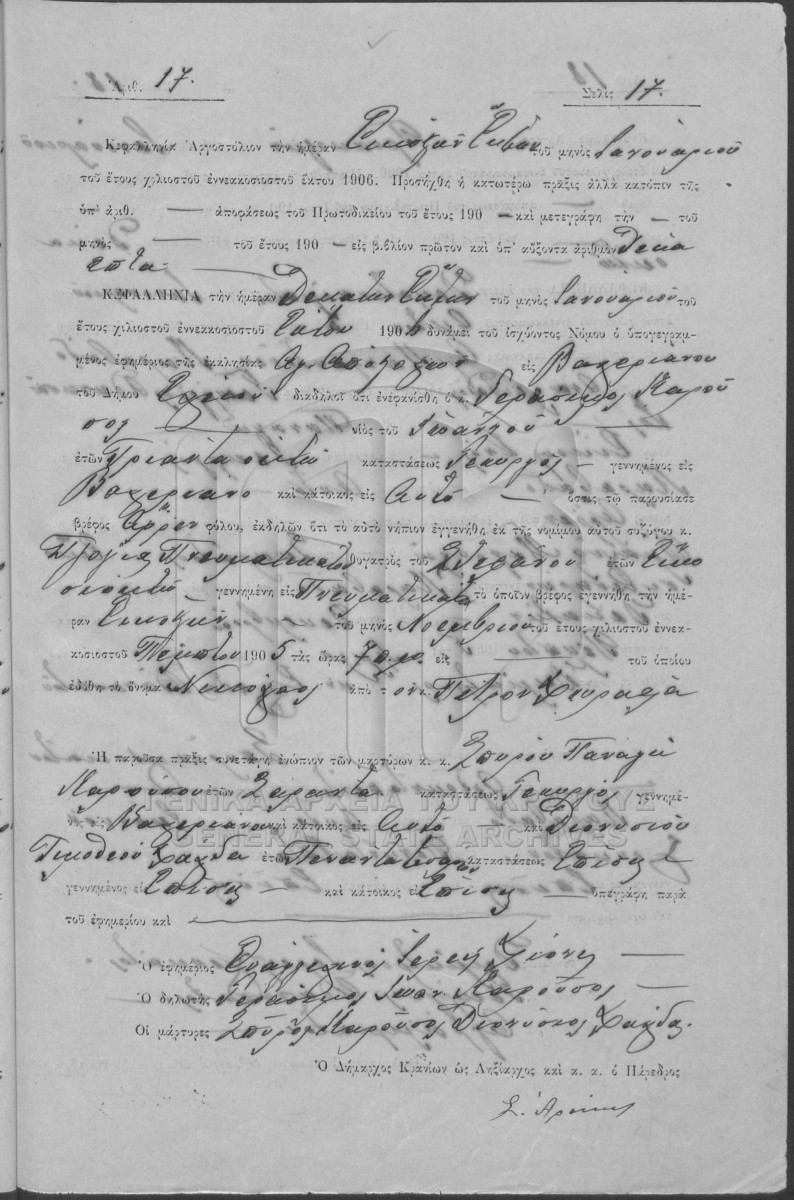 Ἀριθ. 17. Σελὶς 17.
Κεφαλληνία Ἀργοστόλιον τὴν ἡμέραν Εἰκοστὴν τοῦ μηνὸς Ἰανουαρίου
τοῦ ἔτους χιλιοστοῦ ἐννεακοσιοστοῦ ἕκτου 1906. Προσήχθη ἡ κατωτέρω πρᾶξις ἀλλὰ κατόπιν τῆς
ὑπ' ἀριθ. — ἀποφάσεως τοῦ Πρωτοδικείου τοῦ ἔτους 190 — καὶ μετεγράφη τὴν — τοῦ
μηνὸς — τοῦ ἔτους 190 — εἰς βιβλίον πρῶτον καὶ ὑπ' αὔξοντα ἀριθμὸν Δέκα
επτα —
ΚΕΦΑΛΛΗΝΙΑ τὴν ἡμέραν Δεκάτην τοῦ μηνὸς Ἰανουαρίου τοῦ
ἔτους χιλιοστοῦ ἐννεακοσιοστοῦ 190 δυνάμει τοῦ ἰσχύοντος Νόμου ὁ ὑπογεγραμ-
μένος ἐφημέριος τῆς ἐκκλησίας Αγ. Αποστόλων εἰς Βαλεριάνου
τοῦ Δήμου διαδηλοῖ ὅτι ἐνεφανίσθη ὁ κ. Γεράσιμος Καροῦ
σος — υἱὸς τοῦ Ἰωάννου —
ἐτῶν Τριάντα οκτώ καταστάσεως Γεωργός — γεννημένος εἰς
Βαλεριάνο καὶ κάτοικος εἰς Αυτό — ὅστις τῷ παρουσίασε
βρέφος Ἄρρεν φύλου, ἐκδηλῶν ὅτι τὸ αὐτὸ νήπιον ἐγγενήθη ἐκ τῆς νομίμου αὐτοῦ συζύγου κ.
Πνευματικάτο θυγατρὸς τοῦ Στεφάνου ἐτῶν Εἴκο
σιοκτώ — γεννημένη εἰς Πνευματικάτο τὸ ὁποῖον βρέφος ἐγεννήθη τὴν ἡμέ-
ραν Εικοστήν — τοῦ μηνὸς Νοεμβρίου τοῦ ἔτους χιλιοστοῦ ἐννεα-
κοσιοστοῦ Πέμπτου 1905 τὰς ὥρας 7 π.μ. εἰς — τοῦ ὁποίου
ἐδόθη τὸ ὄνομα Νικόλαος ἀπὸ τὸν κ. Πέτρον
Ἡ παροῦσα πρᾶξις συνετάγη ἐνώπιον τῶν μαρτύρων κ. κ. Σπύρου Παναγῆ
Καρούσου ἐτῶν Σαράντα καταστάσεως Γεωργός γεννημέ-
νος εἰς Βαλεριάνο καὶ κάτοικος εἰς Αυτό — καὶ Διονυσίου
Τιμοθέου ἐτῶν καταστάσεως Επίσης —
γεννημένος εἰς Επίσης — καὶ κάτοικος εἰς Επίσης — ὑπεγράφη παρὰ
τοῦ ἐφημερίου καὶ —
ΓΕΝΙΚΑ ΑΡΧΕΙΑ ΤΟΥ ΚΡΑΤΟΥΣ
GENERAL STATE ARCHIVES
Ὁ ἐφημέριος Ευάγγελινός Ιερεύς —
Ὁ δηλωτὴς Γεράσιμος Ιωάν. Καροῦσος —
Οἱ μάρτυρες Σπῦρος Καροῦσος Διονύσιος
Ὁ Δήμαρχος Κρανίων ὡς Ληξίαρχος καὶ κ. α. ὁ Πάρεδρος